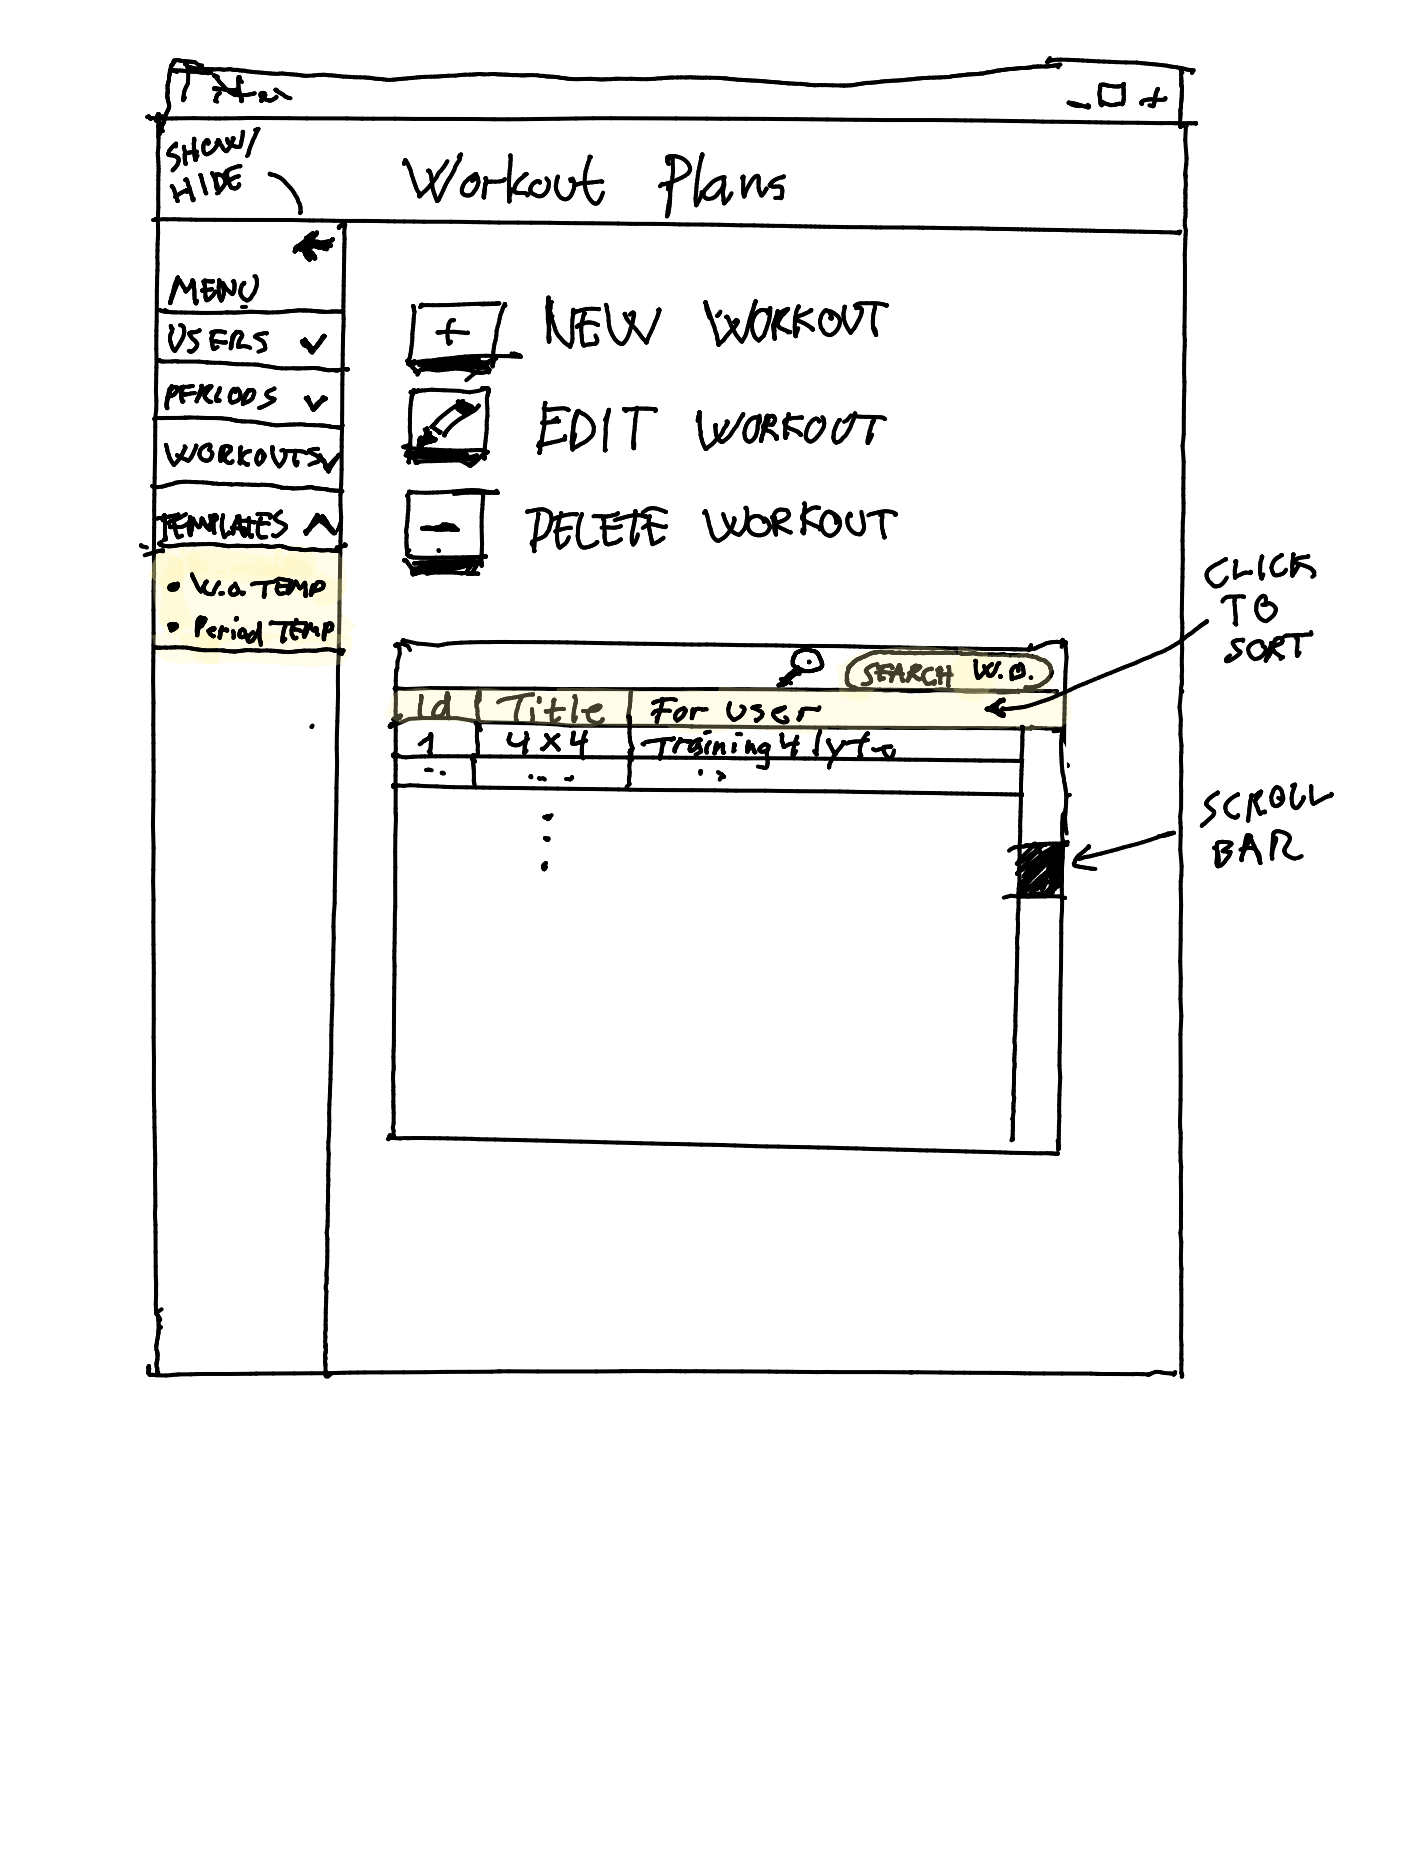 SHOW/
HIDE
Workout Plans
MENU
USERS
PERIODS
WORKOUTS
TEMPLATES
• W.O. TEMP
• Period TEMP
+ NEW WORKOUT
EDIT WORKOUT
- DELETE WORKOUT
CLICK
TO
SORT
SEARCH W.O.
Id Title For user
1 4x4 Training4
SCROLL
BAR